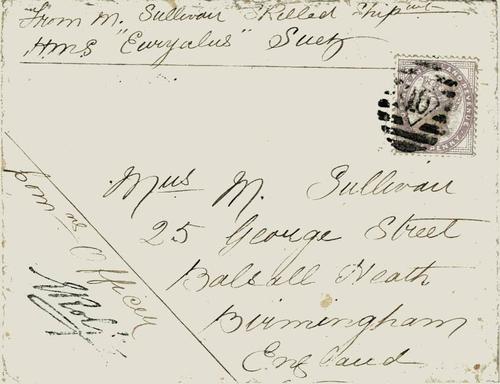 From M. Sullivan Skilled Ship wt
HMS "Euryalus" Suez
Mrs M. Sullivan
25 George Street
Balsall Heath
Birmingham
England
Officer